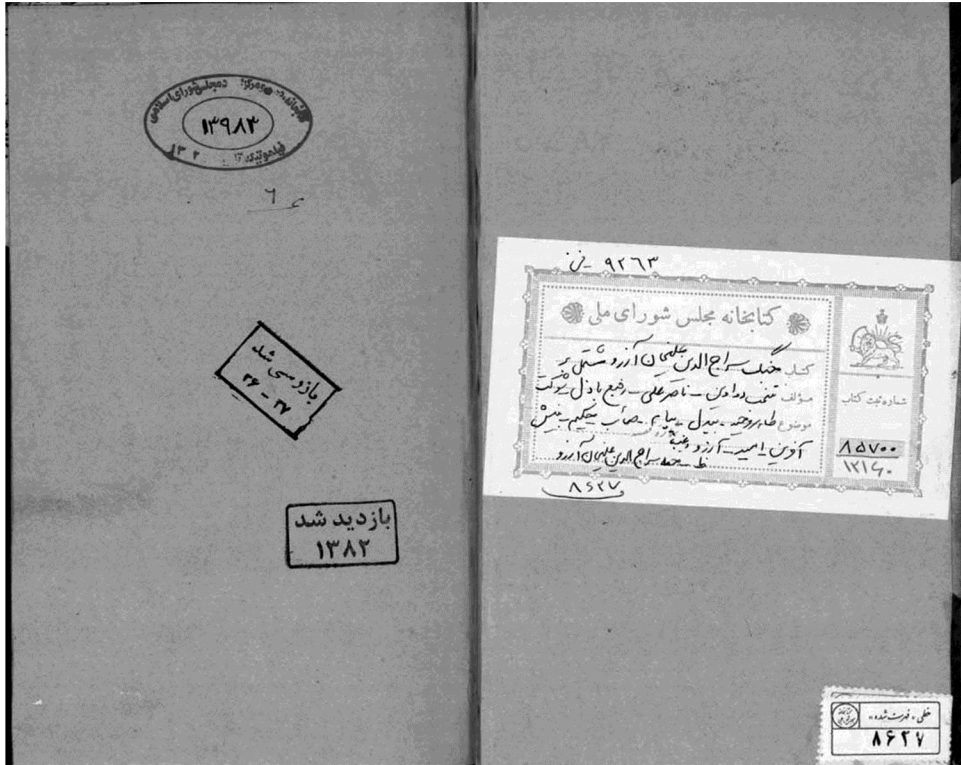 کتابخانه مرکز مجلس شورای اسلامی
۱۳۹۸۴
۶
بازرسی شد
۳۶ - ۳۷
بازدید شد
۱۳۸۲
۹۲۶۳ - فن
کتابخانه مجلس شورای ملی
کتاب جنگ سراج الدین علیخان آرزو مشتمل بر
مؤلف منتخب دواوین - ناصر علی - رفیع باذل - شوکت
موضوع طاهر وحید - بیدل - پیام - صائب - حکیم - بینش
آفرین - امید - آرزو
خط - سراج الدین علیخان آرزو
۸۶۲۷
شماره ثبت کتاب
۸۵۷۰۰
خطی - فهرست شده
۸۶۲۷